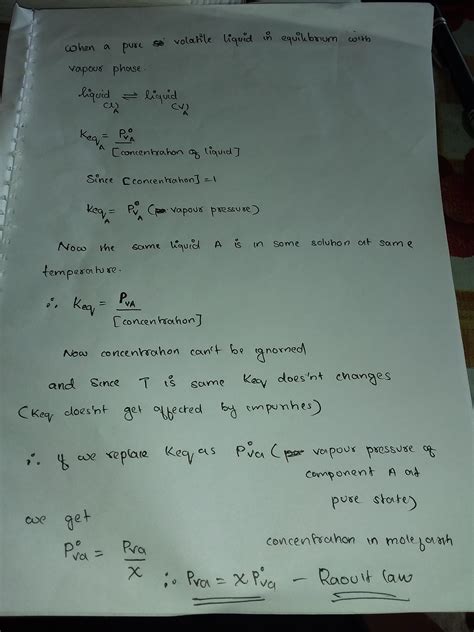 When a pure volatile liquid in equilibrium with
vapour phase
liquid (l)A ⇌ liquid (v)A
KeqA = P°VA / [concentration of liquid]
Since [concentration] = 1
KeqA = P°VA (vapour pressure)
Now the same liquid A is in some solution at same
temperature.
∴ Keq = PVA / [concentration]
Now concentration can't be ignorned
and since T is same Keq does'nt changes
(Keq does'nt get affected by impurities)
∴ if we replace Keq as P°va (vapour pressure of
component A at
pure state)
we get
concentration in mole
P°va = Pva / x ∴ Pva = x P°va – Raoult law